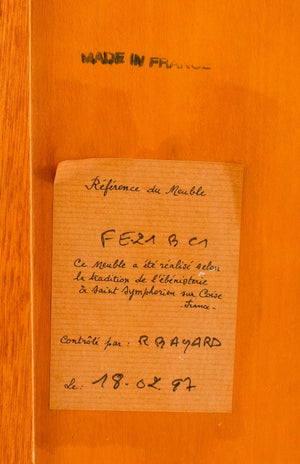 MADE IN FRANCE
Référence du Meuble
FE21 B C1
Ce Meuble a été réalisé selon
la tradition de l'ébénisterie
à Saint Symphorien sur Coise
- France -
Contrôlé par : R BAYARD
Le : 18.02.97